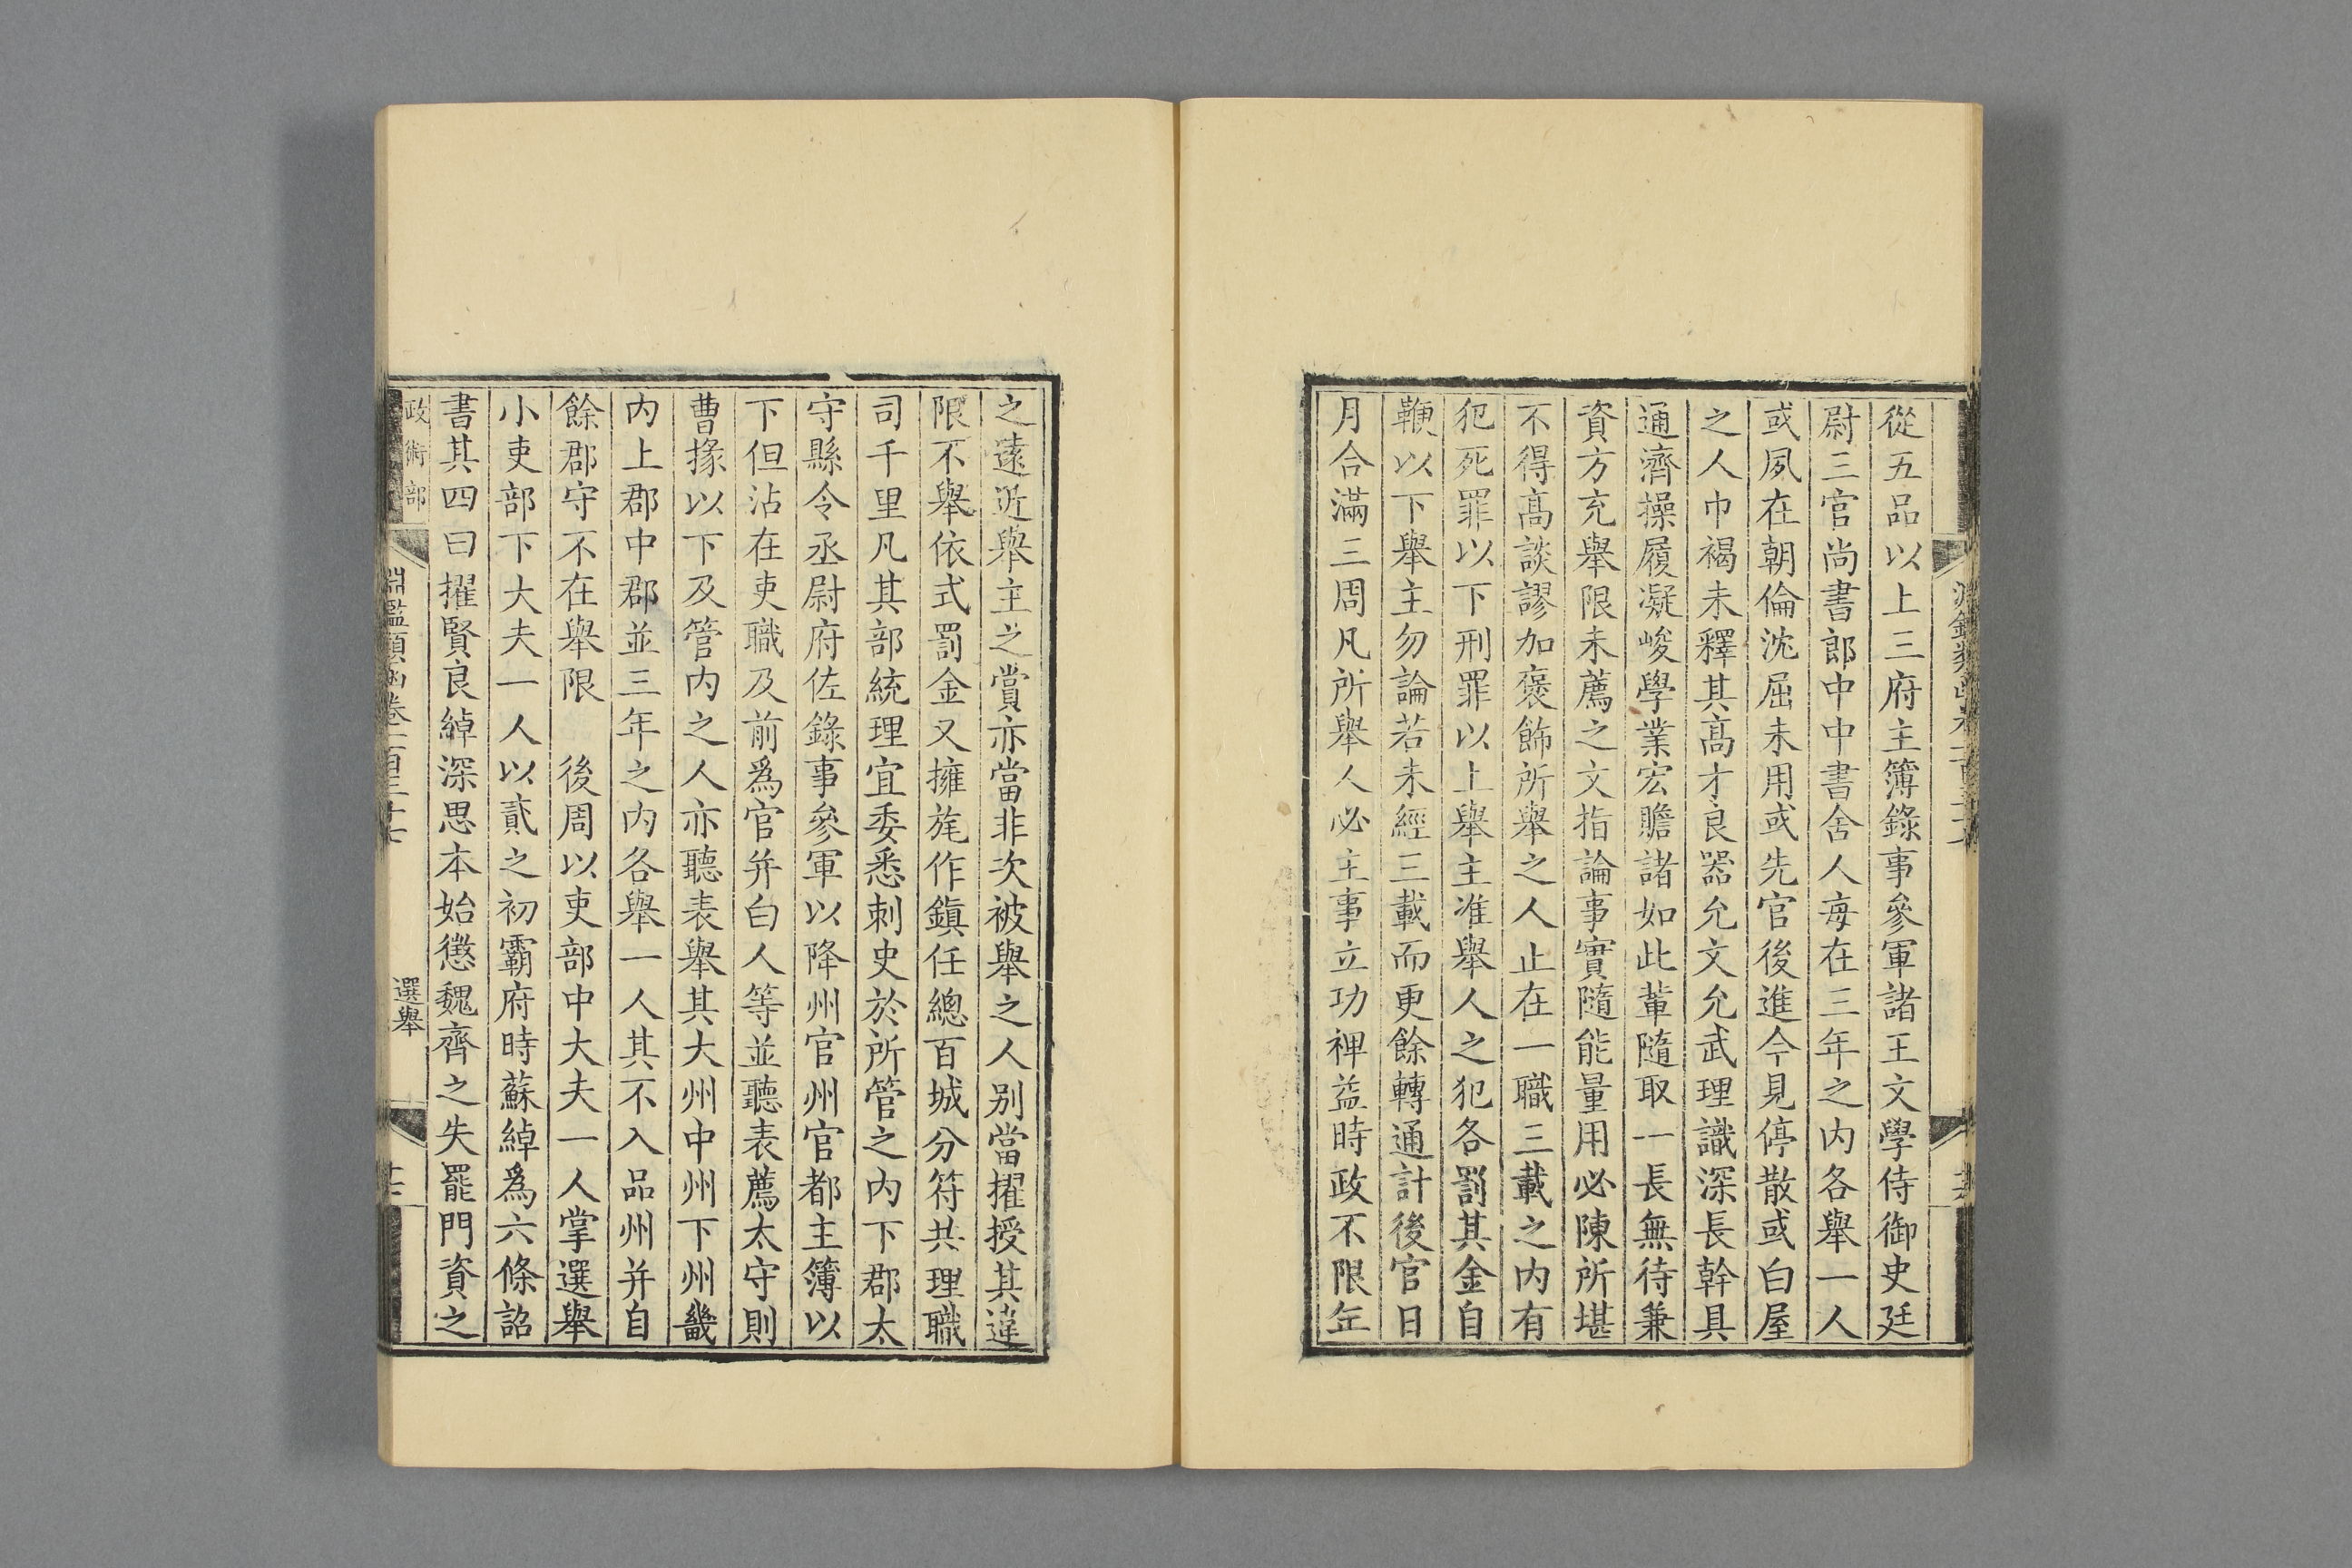 從五品以上三府主簿錄事參軍諸王文學侍御史廷
尉三官尚書郎中中書舍人每在三年之內各舉一人
或夙在朝倫沈屈未用或先官後進今見停散或白屋
之人巾褐未釋其高才良器允文允武理識深長幹具
通濟操履凝峻學業宏贍諸如此輩隨取一長無待兼
資方充舉限未薦之文指論事實隨能量用必陳所堪
不得高談謬加褒飾所舉之人止在一職三載之內有
犯死罪以下刑罪以上舉主准舉人之犯各罰其金自
鞭以下舉主勿論若未經三載而更餘轉通計後官日
月合滿三周凡所舉人必主事立功裨益時政不限年
之遠近舉主之賞亦當非次被舉之人別當擢授其違
限不舉依式罰金又擁旄作鎮任總百城分符共理職
司千里凡其部統理宜委悉刺史於所管之內下郡太
守縣令丞尉府佐錄事參軍以降州官州官都主簿以
下但沾在吏職及前爲官并白人等並聽表薦太守則
曹掾以下及管內之人亦聽表舉其大州中州下州畿
內上郡中郡並三年之內各舉一人其不入品州并自
餘郡守不在舉限　後周以吏部中大夫一人掌選舉
小吏部下大夫一人以貳之初霸府時蘇綽爲六條詔
書其四曰擢賢良綽深思本始懲魏齊之失罷門資之
政術部
淵鑑類函卷一百三十七
選舉